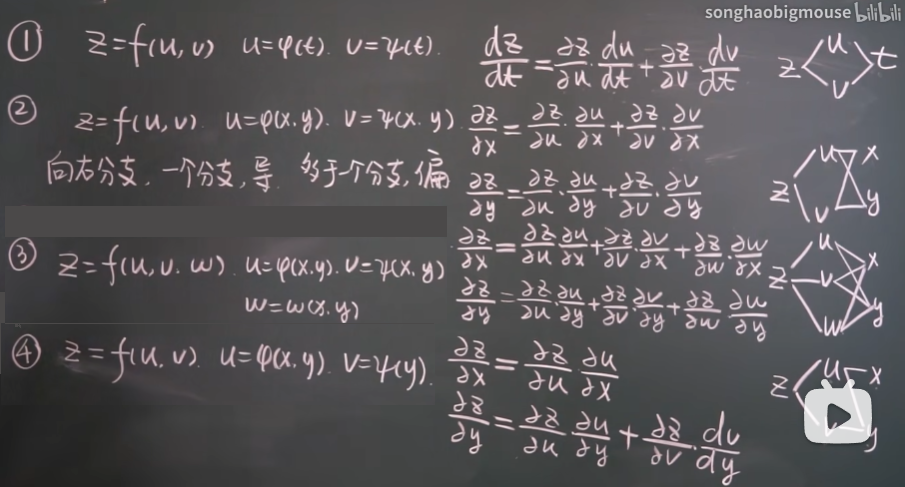 songhaobigmouse bilibili
① z=f(u,v) u=φ(t). v=ψ(t). dz/dt = ∂z/∂u · du/dt + ∂z/∂v · dv/dt z u v t
② z=f(u,v). u=φ(x.y). v=ψ(x.y). ∂z/∂x = ∂z/∂u · ∂u/∂x + ∂z/∂v · ∂v/∂x
向右分支.一个分支,导. 多于一个分支,偏 ∂z/∂y = ∂z/∂u · ∂u/∂y + ∂z/∂v · ∂v/∂y z u v x y
③ z=f(u,v.w). u=φ(x.y). v=ψ(x.y) ∂z/∂x = ∂z/∂u ∂u/∂x + ∂z/∂v · ∂v/∂x + ∂z/∂w · ∂w/∂x
w=w(x.y) ∂z/∂y = ∂z/∂u · ∂u/∂y + ∂z/∂v ∂v/∂y + ∂z/∂w · ∂w/∂y z u v w x y
④ z=f(u.v). u=φ(x.y). v=ψ(y). ∂z/∂x = ∂z/∂u ∂u/∂x z u x y
∂z/∂y = ∂z/∂u ∂u/∂y + ∂z/∂v · dv/dy